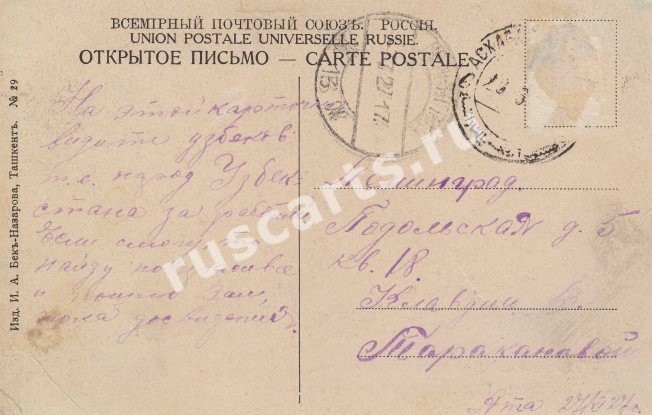 ВСЕМІРНЫЙ ПОЧТОВЫЙ СОЮЗЪ. РОССІЯ.
UNION POSTALE UNIVERSELLE RUSSIE.
ОТКРЫТОЕ ПИСЬМО — CARTE POSTALE
Изд. И. А. Бекъ-Назарова, Ташкентъ. № 29
На этой карточке
видите узбеков
т.е. народ Узбек-
стана за работой
найду
и пошлю Вам,
пока до свидания.
Ленинград.
Подольская д. 5
кв. 18.
Клавдии В.
Таракановой
АСХАБ
27.17
ruscarts.ru